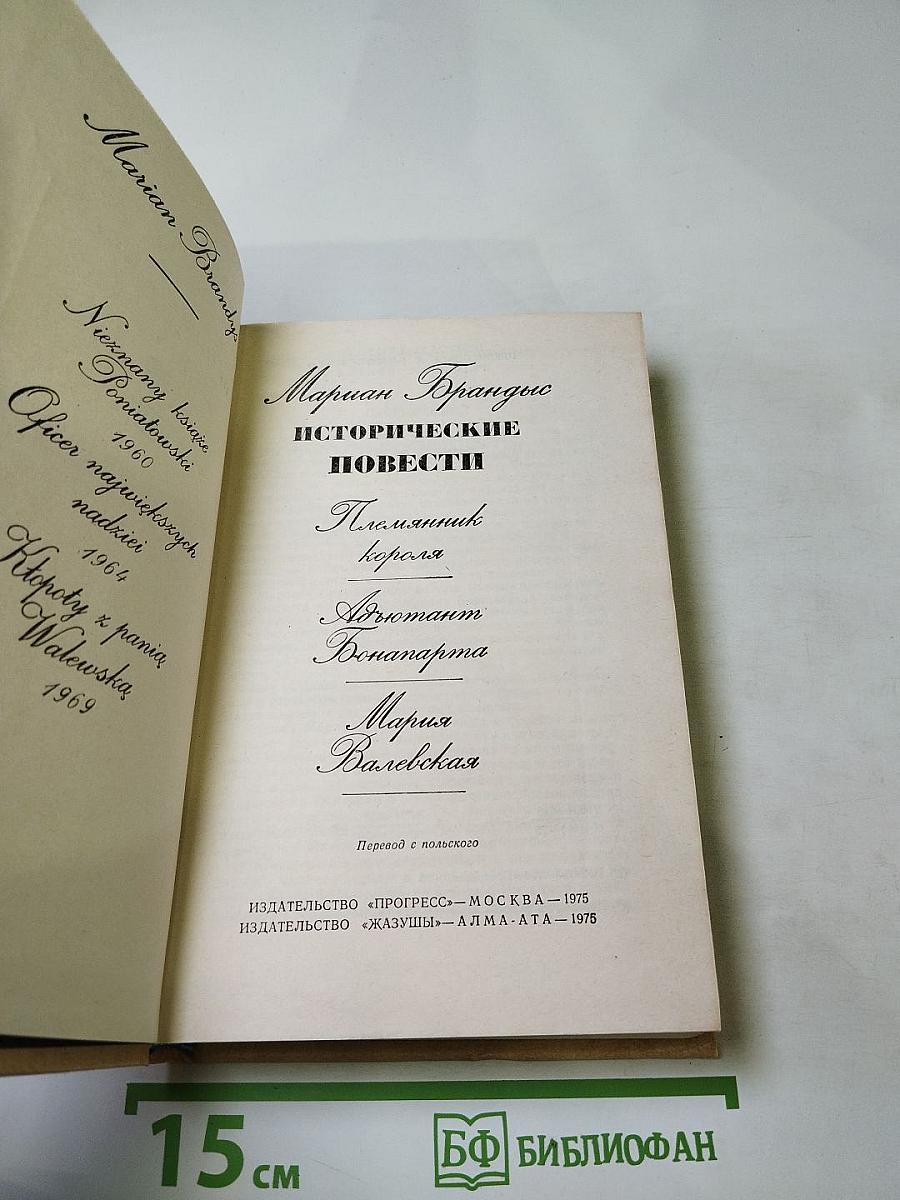 Marian Brandys
Nieznany książę
Poniatowski
1960
Oficer największych
nadziei
1964
Kłopoty z panią
Walewską
1969
Мариан Брандыс
ИСТОРИЧЕСКИЕ
ПОВЕСТИ
Племянник
короля
Адъютант
Бонапарта
Мария
Валевская
Перевод с польского
ИЗДАТЕЛЬСТВО «ПРОГРЕСС»—МОСКВА—1975
ИЗДАТЕЛЬСТВО «ЖАЗУШЫ»—АЛМА-АТА—1975
15 см
БФ БИБЛИОФАН